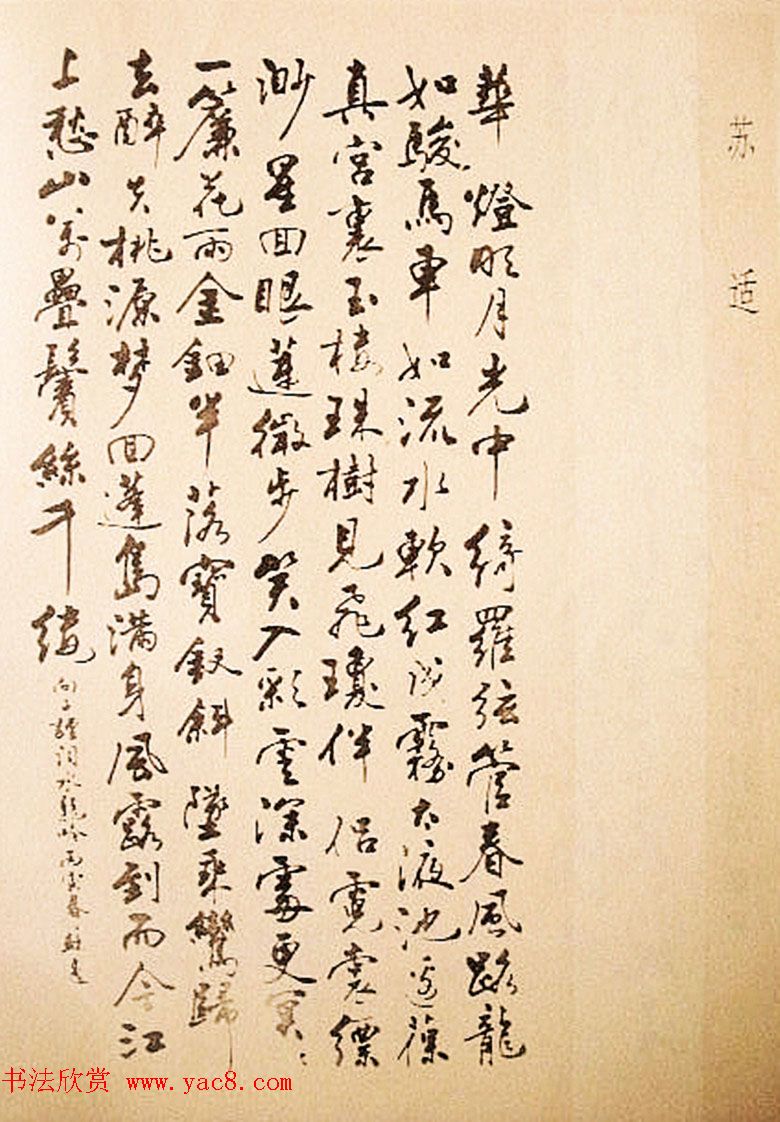 苏适
華燈明月光中綺羅弦管春風路龍
如駿馬車如流水軟紅成霧太液池邊葆
真宮裏玉樓珠樹見飛瓊伴侶霓裳縹
渺星回眼蓮微步笑入彩雲深處更冥〻
一簾花雨金鈿半落寶釵斜墜乘鸞歸
去醉失桃源梦回蓬島滿身風露到而今江
上愁山萬疊鬢絲千縷
向子諲詞水龍吟春蘇适
书法欣赏 www.yac8.com